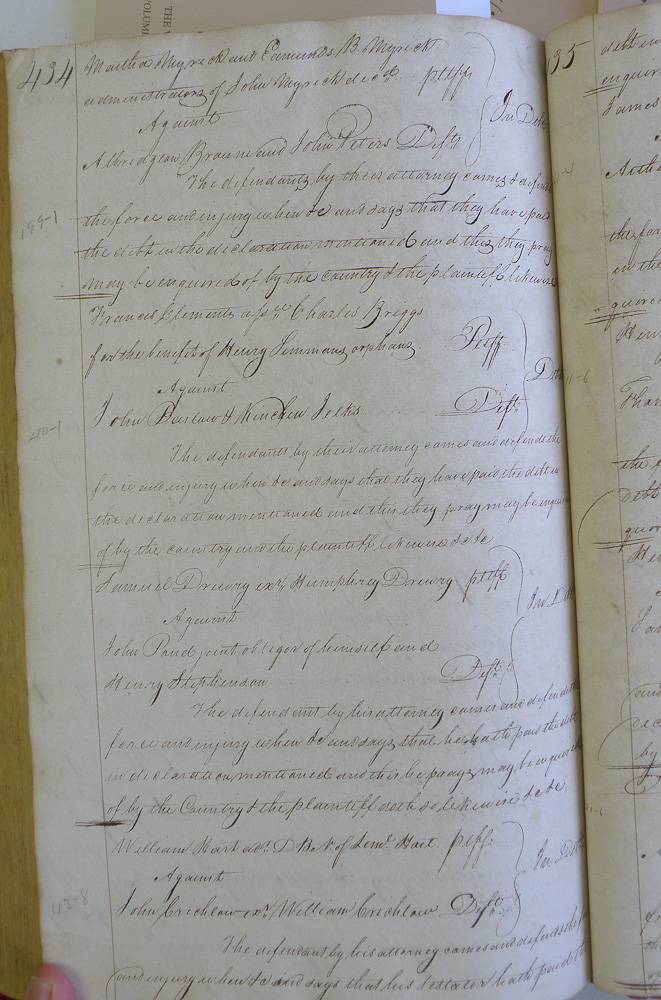 434
Martha Myrick and Edmunds B. Myrick
administrators of John Myrick decd. pltff
Against
In Debt
Albridgton Browne and John Peters Defts
The defendants by their attorney comes & defends
the force and injury when &c and says that they have paid
the debt in the declaration mentioned and this they pray
may be enquired of by the country & the plaintiff likewise
199-1
Francis Clements asse. Charles Briggs
for the benefit of Henry Simmons orphans Pltff
Against
Debt
John Barlow & Nicholas Defts
40-1
The defendants by their attorney comes and defends the
force and injury when &c and says that they have paid the debt in
the declaration mentioned and this they pray may be enquired
of by the country and the plaintiff likewise &c &c
Samuel Drewry exr. Humphrey Drewry pltff
Against
In Debt
John Pond joint obligor of himself and
Henry Stephenson Deft.
The defendant by his attorney comes and defends the
force and injury when &c and says that he hath paid the debt
in declaration mentioned and this he prays may be enquired
of by the Country & the plaintiff doth so likewise &c &c
William Hart ad. D B N of Hart pltff.
Against
In Debt
John Crichlow exr. William Crichlow Deft.
118-8
The defendant by his attorney comes and defends the force
and injury when &c and says that his testator hath paid the
35
debt in
enquired
James
the for
in the
Debt
and
by